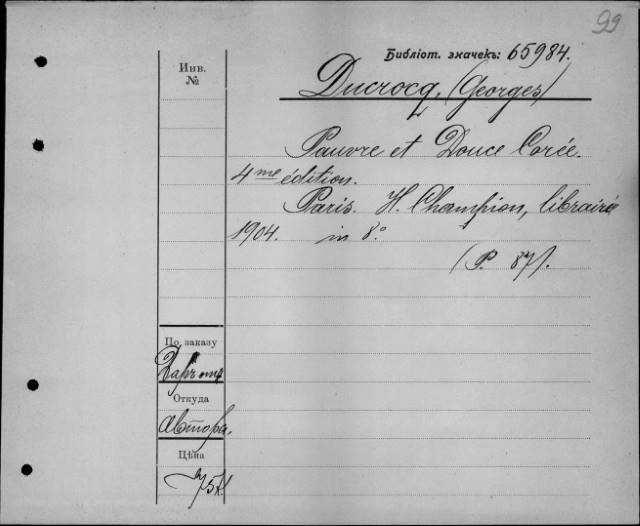 99
Библіот. значекъ: 65984.
Инв.
№
Ducrocq, (Georges)
Pauvre et Douce Corée.
4me édition.
Paris. H. Champion, libraire
1904. in 8°
(P. 87).
По заказу
Даръ отъ
Откуда
автора.
Цѣна